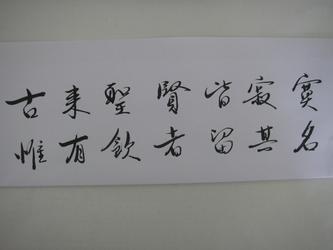 古来聖賢皆寂寞
惟有飲者留其名